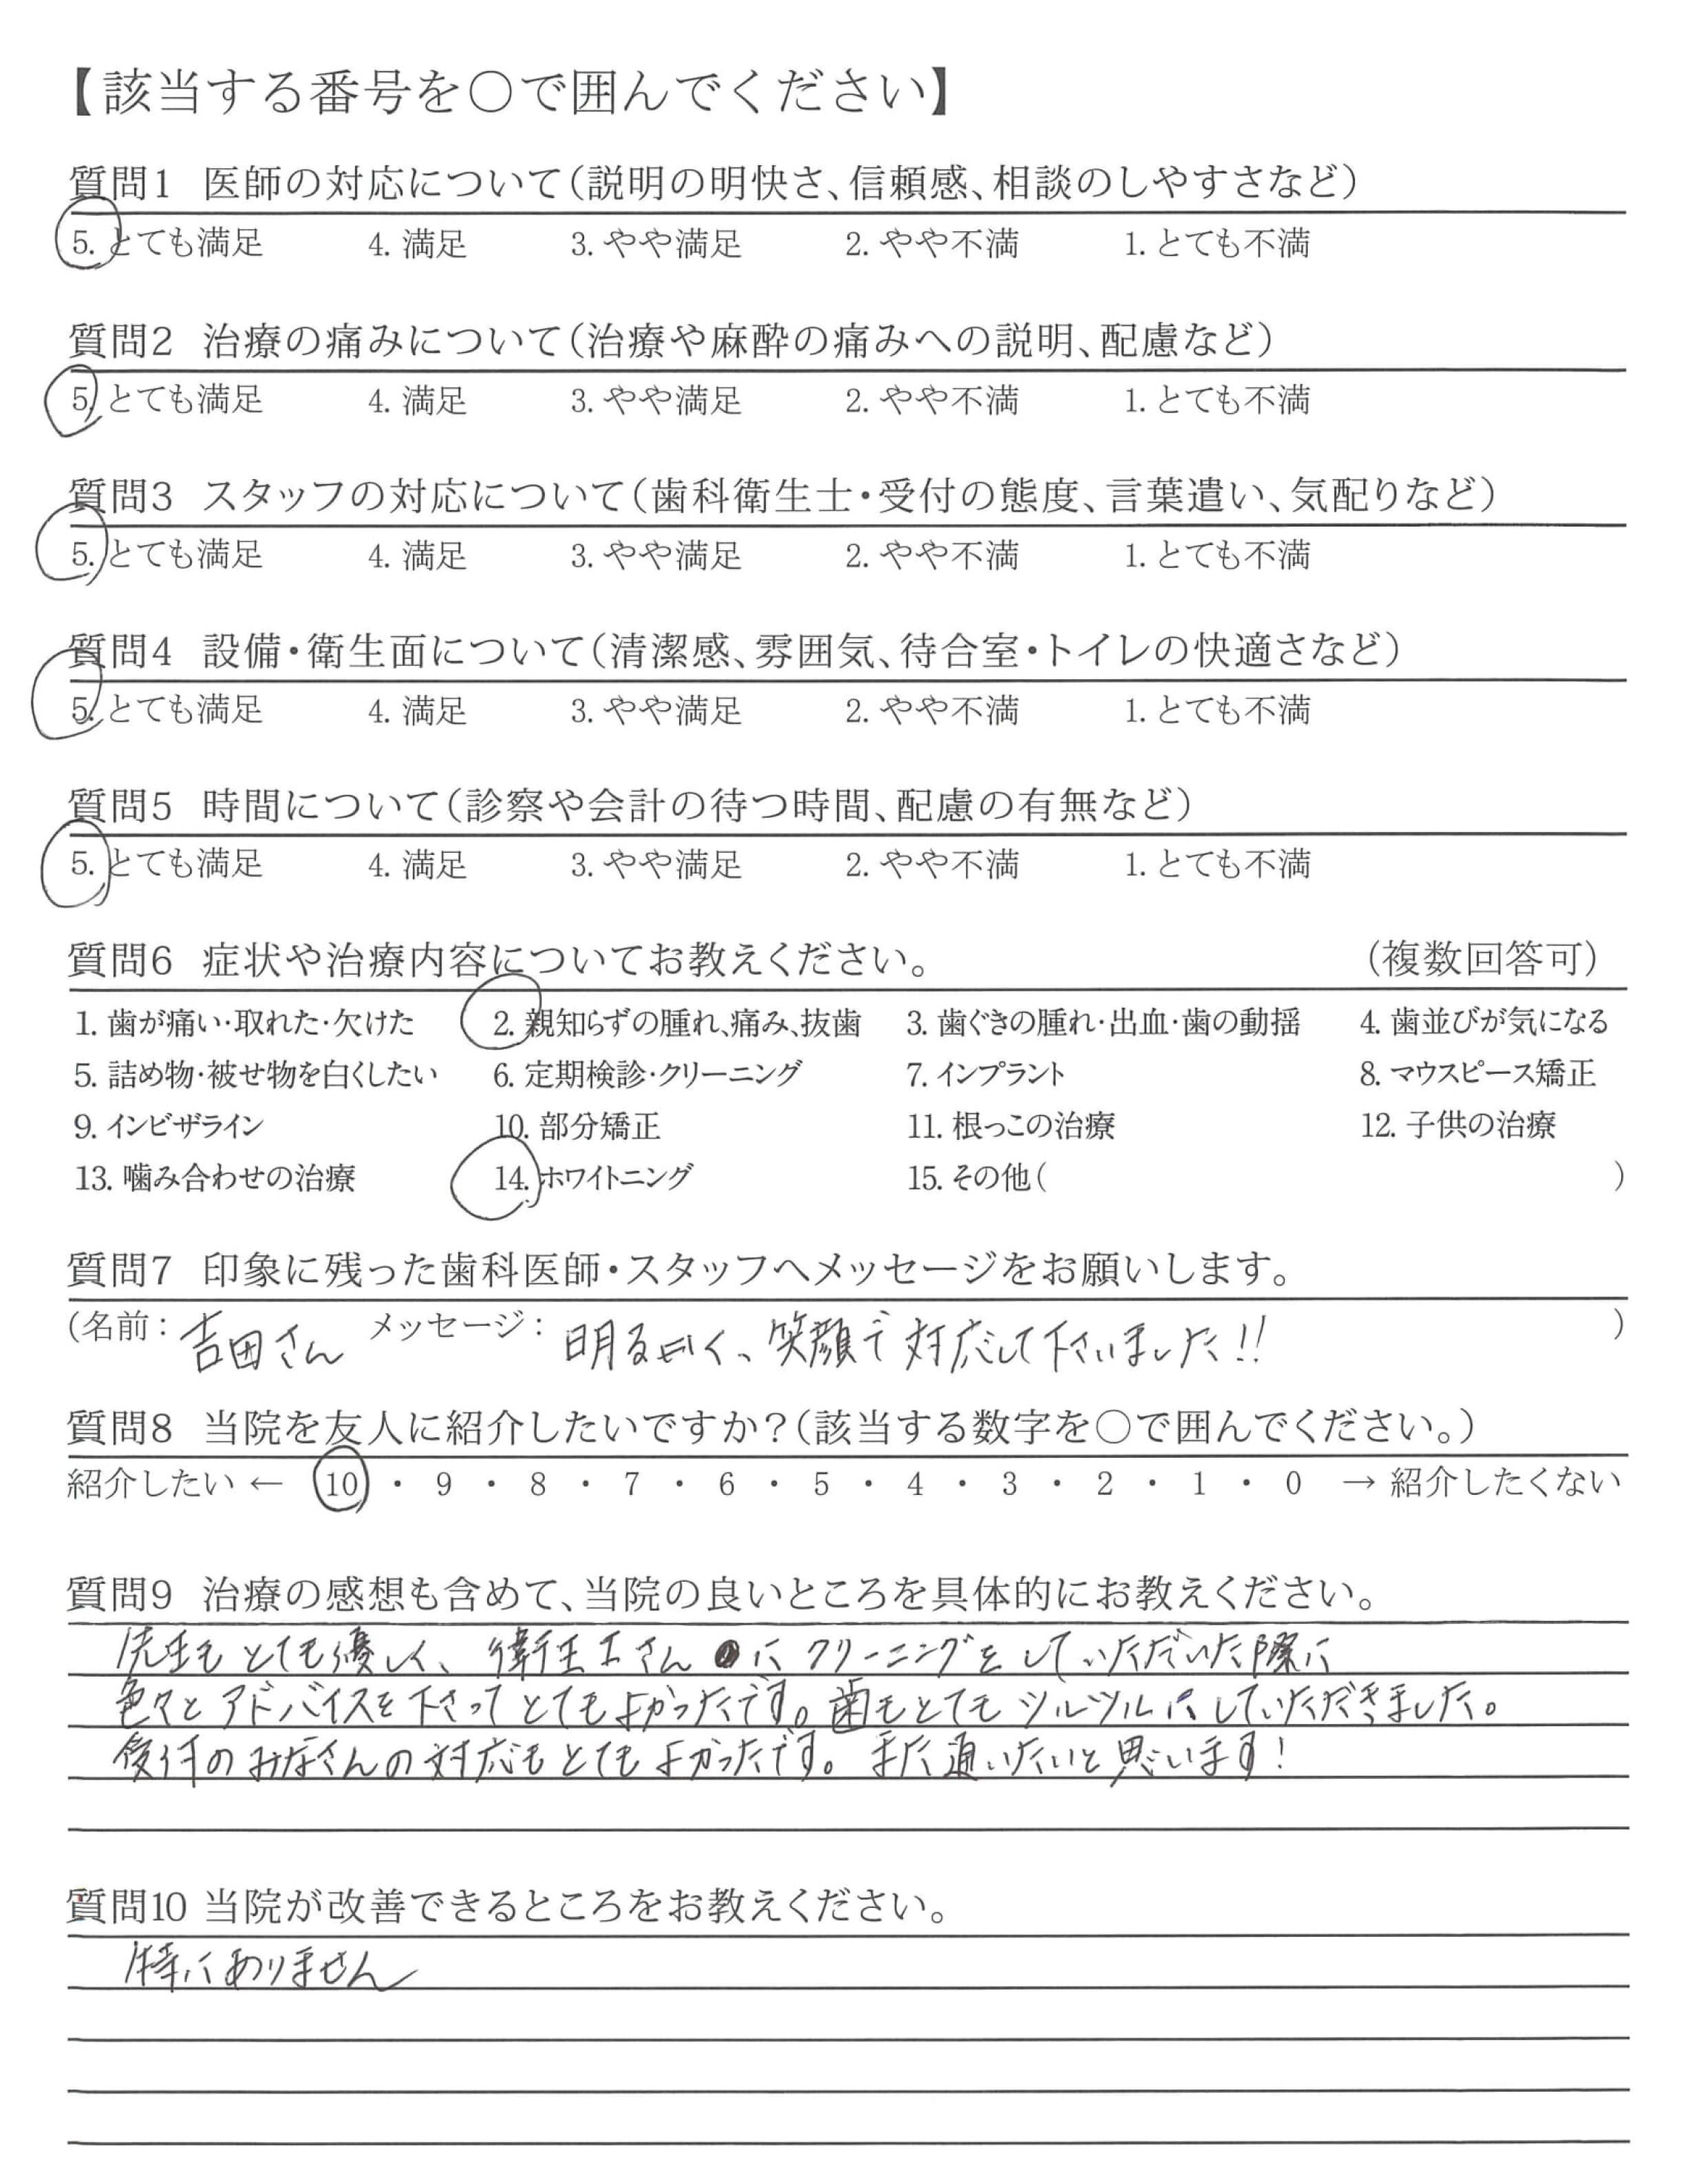 【該当する番号を○で囲んでください】
質問1 医師の対応について(説明の明快さ、信頼感、相談のしやすさなど)
5. とても満足 4. 満足 3. やや満足 2. やや不満 1. とても不満
質問2 治療の痛みについて(治療や麻酔の痛みへの説明、配慮など)
5. とても満足 4. 満足 3. やや満足 2. やや不満 1. とても不満
質問3 スタッフの対応について(歯科衛生士・受付の態度、言葉遣い、気配りなど)
5. とても満足 4. 満足 3. やや満足 2. やや不満 1. とても不満
質問4 設備・衛生面について(清潔感、雰囲気、待合室・トイレの快適さなど)
5. とても満足 4. 満足 3. やや満足 2. やや不満 1. とても不満
質問5 時間について(診察や会計の待つ時間、配慮の有無など)
5. とても満足 4. 満足 3. やや満足 2. やや不満 1. とても不満
質問6 症状や治療内容についてお教えください。 (複数回答可)
1. 歯が痛い・取れた・欠けた 2. 親知らずの腫れ、痛み、抜歯 3. 歯ぐきの腫れ・出血・歯の動揺 4. 歯並びが気になる
5. 詰め物・被せ物を白くしたい 6. 定期検診・クリーニング 7. インプラント 8. マウスピース矯正
9. インビザライン 10. 部分矯正 11. 根っこの治療 12. 子供の治療
13. 噛み合わせの治療 14. ホワイトニング 15. その他( )
質問7 印象に残った歯科医師・スタッフへメッセージをお願いします。
(名前: 吉田さん メッセージ: 明るく、笑顔で対応して下さいました!! )
質問8 当院を友人に紹介したいですか?(該当する数字を○で囲んでください。)
紹介したい ← 10 ・ 9 ・ 8 ・ 7 ・ 6 ・ 5 ・ 4 ・ 3 ・ 2 ・ 1 ・ 0 → 紹介したくない
質問9 治療の感想も含めて、当院の良いところを具体的にお教えください。
先生もとても優しく、衛生士さんにクリーニングをしていただいた際に
色々とアドバイスを下さってとてもよかったです。歯もとてもツルツルにしていただきました。
受付のみなさんの対応もとてもよかったです。また通いたいと思います!
質問10 当院が改善できるところをお教えください。
特にありません